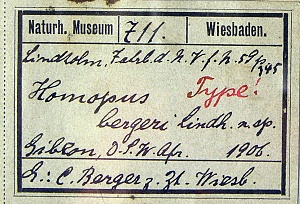 Naturh. Museum 711. Wiesbaden.
Lindholm, Jahrb. d. N. V. f. N. 59/p. 345
Homopus Type!
bergeri Lindh. n. sp.
Gibeon, D. S. W. Afr. 1906.
G.: C. Berger z. Zt. Wiesb.